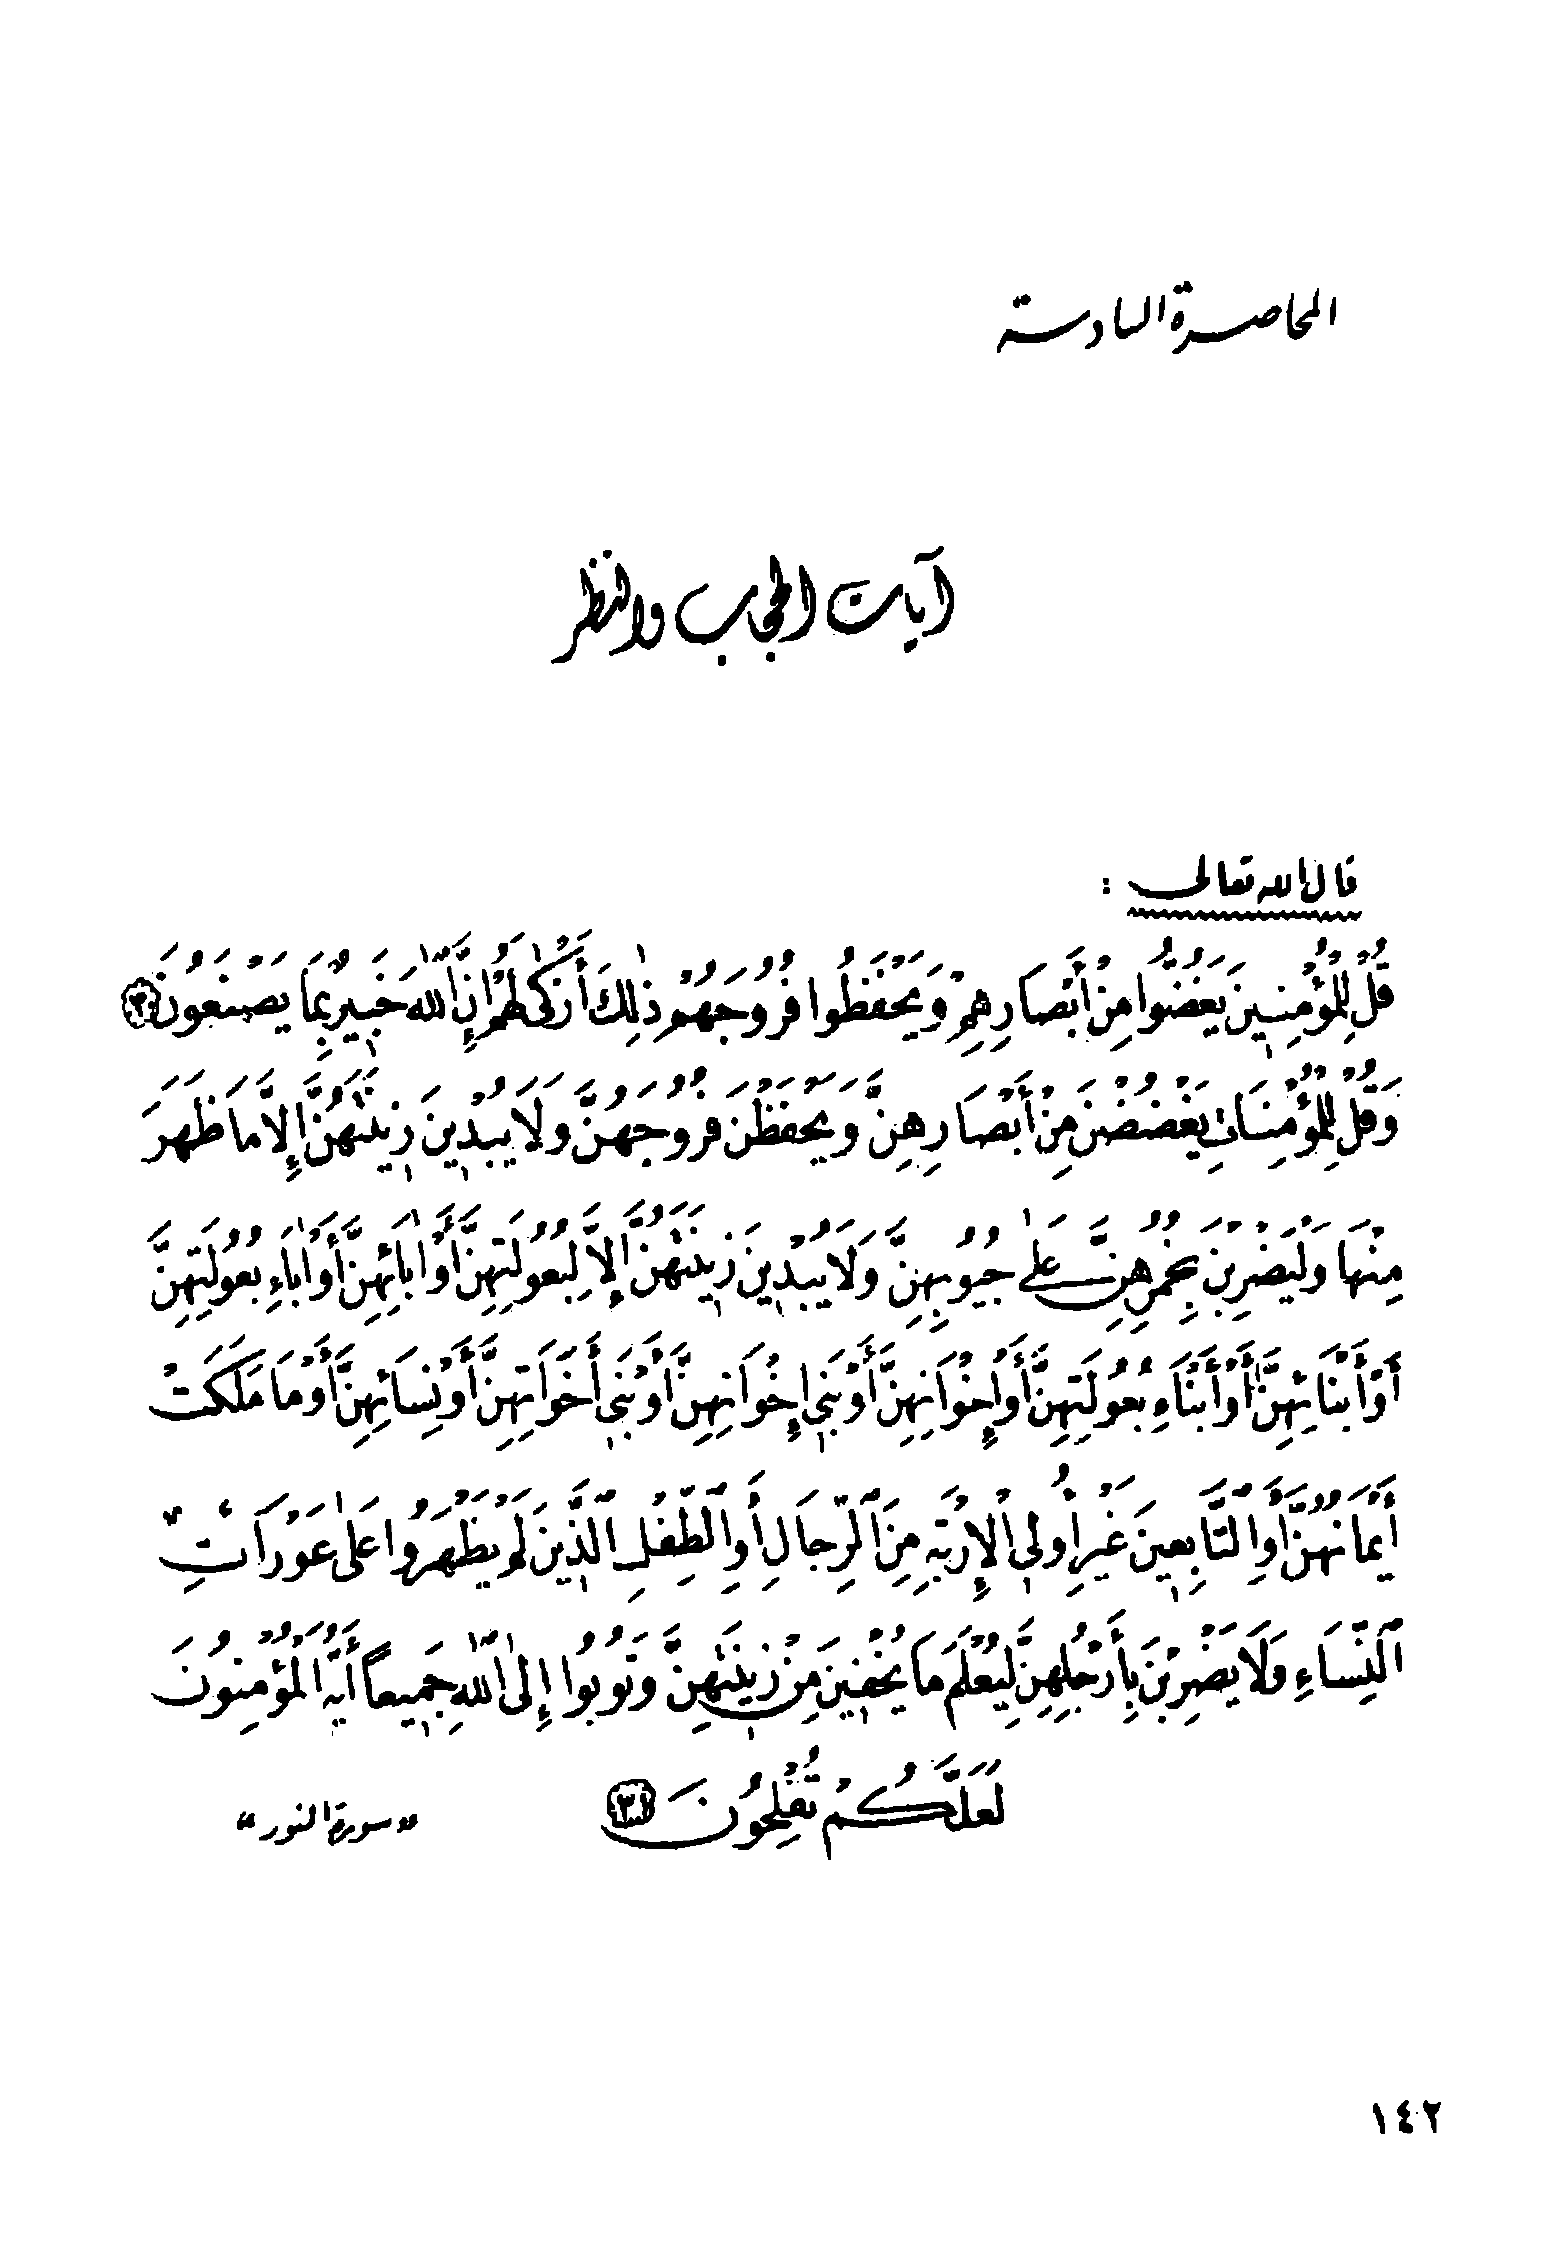 المحاضرة السادسة
آيات الحجاب والنظر
قال الله تعالى :
قُلْ لِلْمُؤْمِنِينَ يَغُضُّوا مِنْ أَبْصَارِهِمْ وَيَحْفَظُوا فُرُوجَهُمْ ذٰلِكَ أَزْكٰى لَهُمْ إِنَّ اللّٰهَ خَبِيرٌ بِمَا يَصْنَعُونَ ٣٠
وَقُلْ لِلْمُؤْمِنَاتِ يَغْضُضْنَ مِنْ أَبْصَارِهِنَّ وَيَحْفَظْنَ فُرُوجَهُنَّ وَلَا يُبْدِينَ زِينَتَهُنَّ إِلاَّ مَا ظَهَرَ
مِنْهَا وَلْيَضْرِبْنَ بِخُمُرِهِنَّ عَلَىٰ جُيُوبِهِنَّ وَلَا يُبْدِينَ زِينَتَهُنَّ إِلاَّ لِبُعُولَتِهِنَّ أَوْ اٰبَائِهِنَّ أَوْ اٰبَاءِ بُعُولَتِهِنَّ
أَوْ أَبْنَائِهِنَّ أَوْ أَبْنَاءِ بُعُولَتِهِنَّ أَوْ إِخْوَانِهِنَّ أَوْ بَنِي إِخْوَانِهِنَّ أَوْ بَنِي أَخَوَاتِهِنَّ أَوْ نِسَائِهِنَّ أَوْ مَا مَلَكَتْ
أَيْمَانُهُنَّ أَوِ التَّابِعِينَ غَيْرِ أُولِي الْإِرْبَةِ مِنَ ٱلرِّجَالِ أَوِ ٱلطِّفْلِ ٱلَّذِينَ لَمْ يَظْهَرُوا عَلَىٰ عَوْرَاتِ
ٱلنِّسَاءِ وَلَا يَضْرِبْنَ بِأَرْجُلِهِنَّ لِيُعْلَمَ مَا يُخْفِينَ مِنْ زِينَتِهِنَّ وَتُوبُوا إِلَىٰ اللّٰهِ جَمِيعاً أَيُّهَ الْمُؤْمِنُونَ
لَعَلَّكُمْ تُفْلِحُونَ ٣١
«سورة النور»
١٤٢